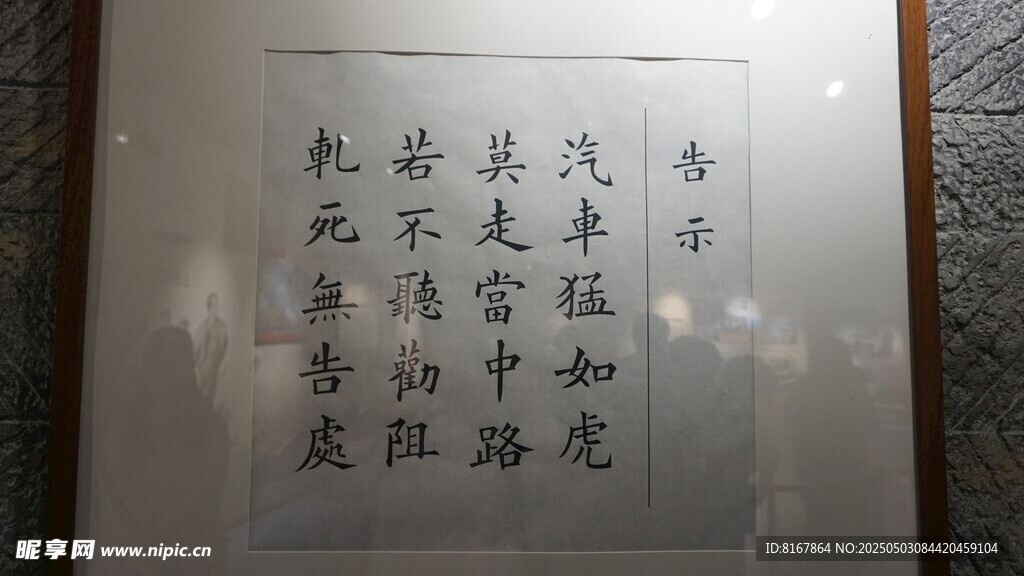 告示
汽車猛如虎
莫走當中路
若不聽勸阻
軋死無告處
昵享网 www.nipic.cn
ID:8167864 NO:20250503084420459104